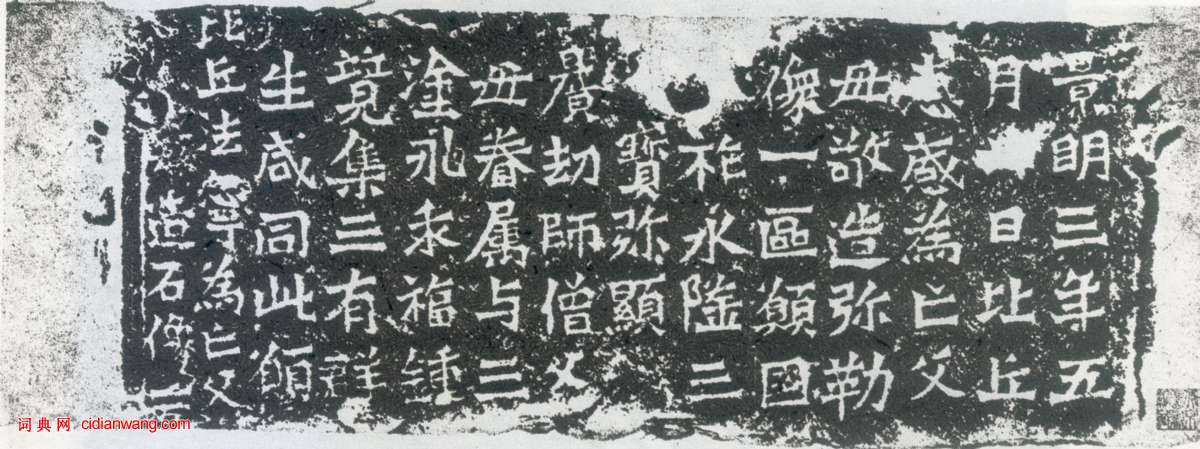 景明三年五
月日比丘
感為亡父
母敬造弥勒
像一區願國
祚永隆三
寶弥顯
曠劫師僧父
母眷属与三
塗永乖福鍾
竟集三有群
生咸同此願
比丘法寧為亡父
造石像一
词典网 cidianwang.com